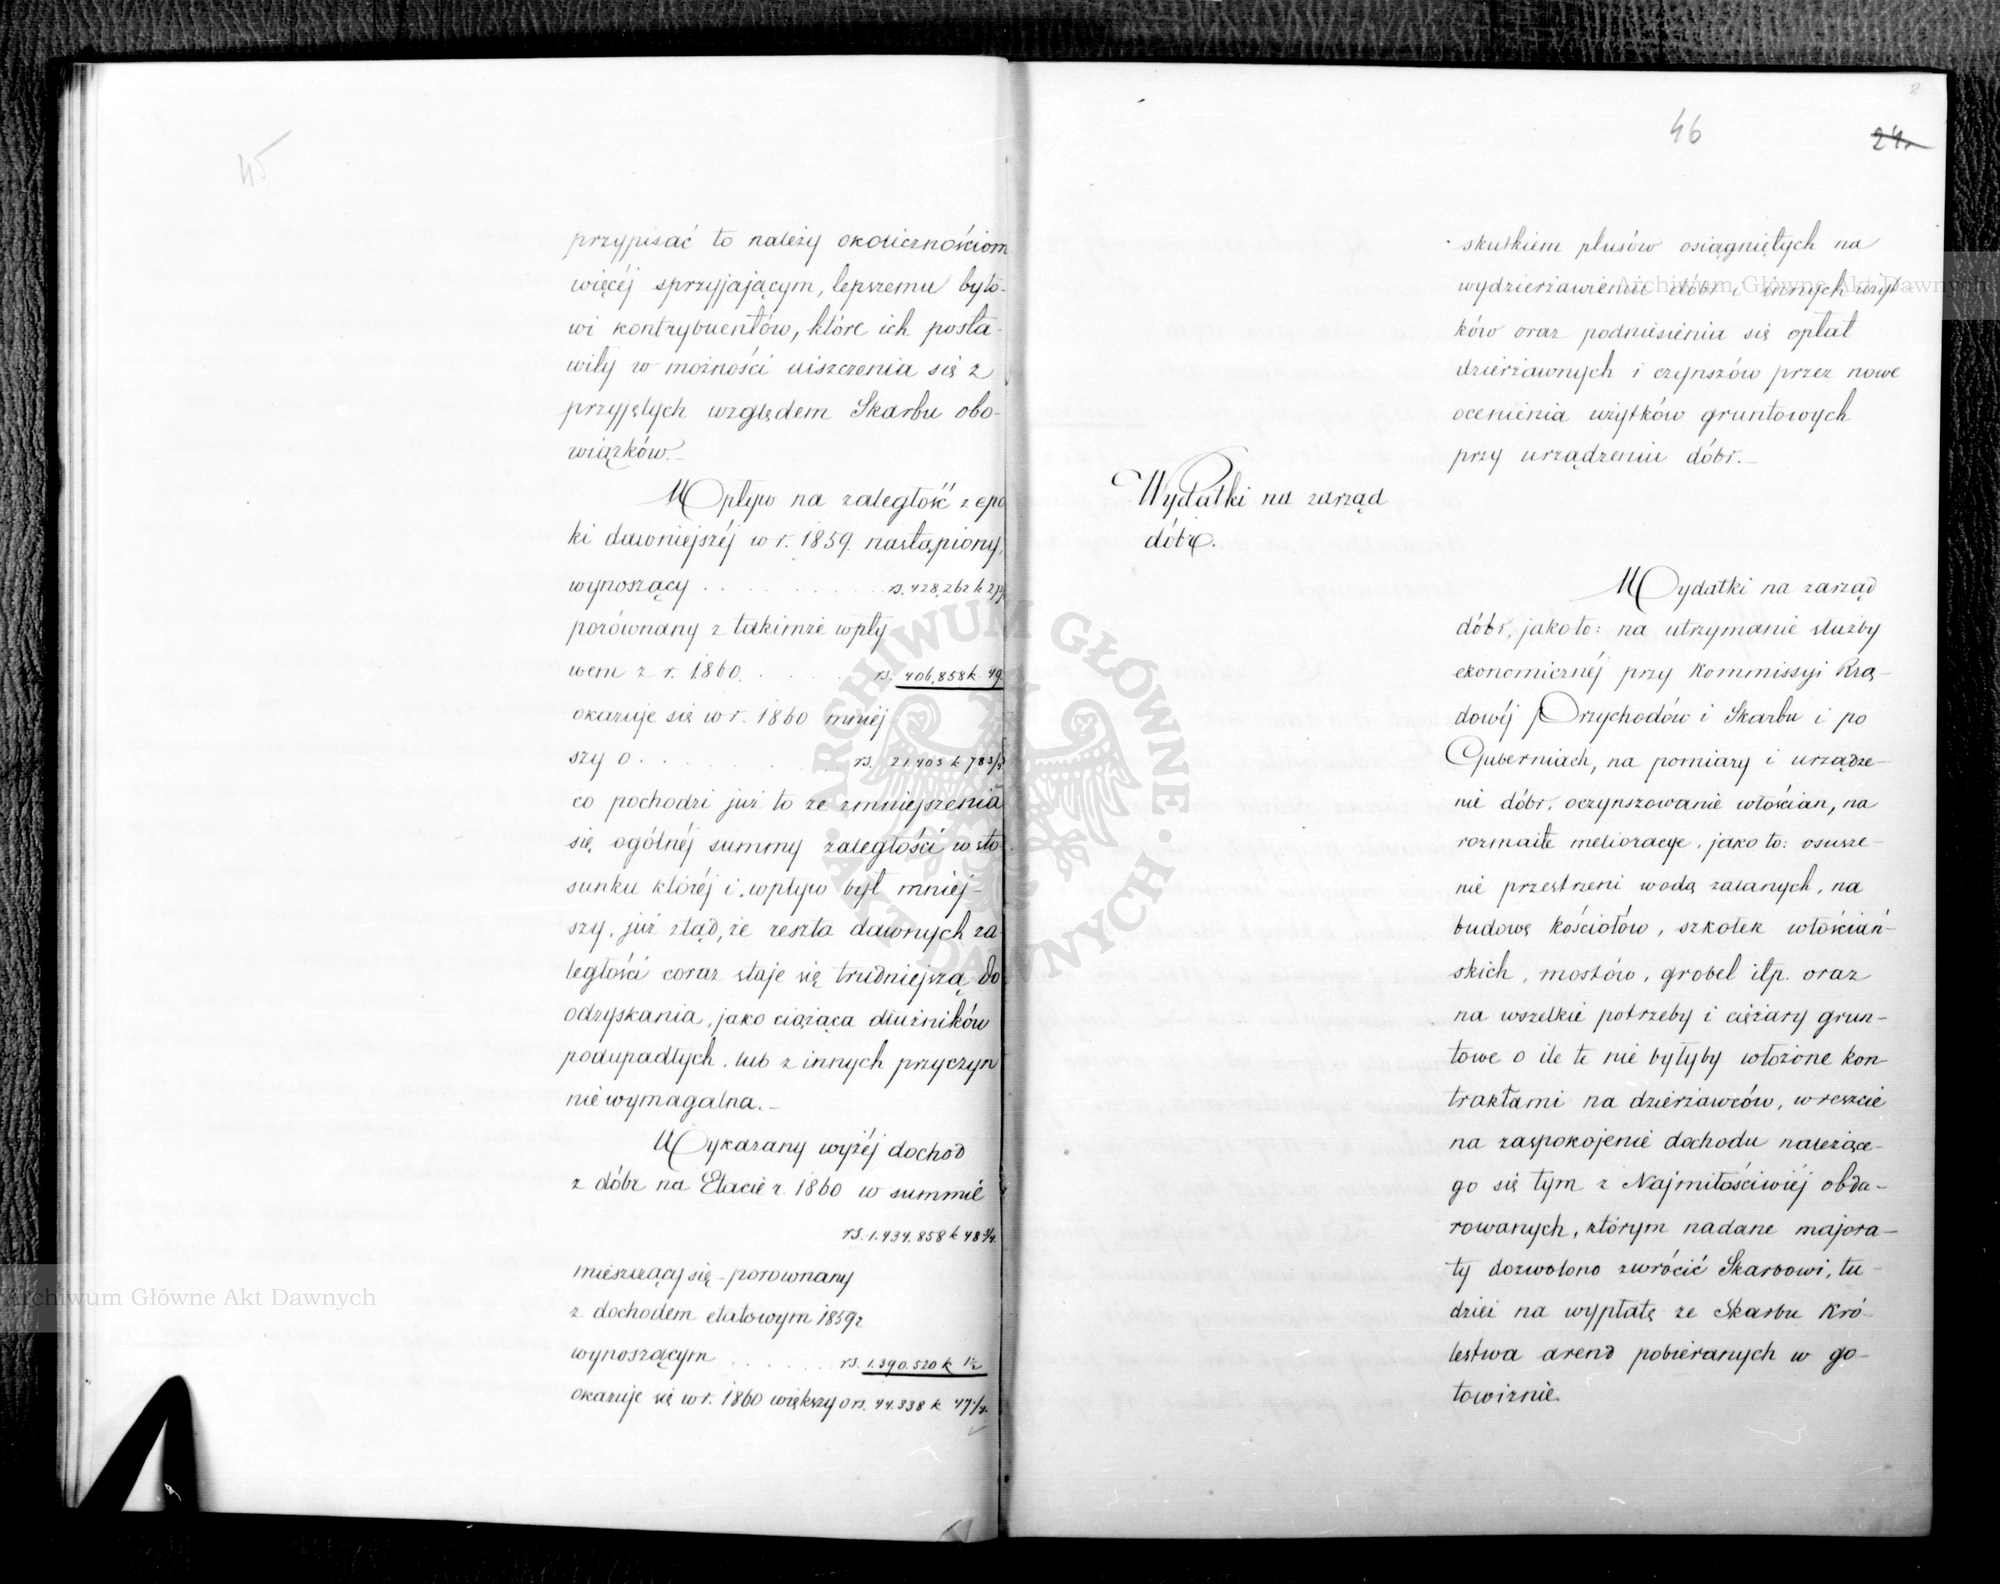 45
przypisać to należy okolicznościom
więcéj sprzyjającym, lepszemu byto-
wi kontrybuentów, które ich posta-
wiły w możności uiszczenia się z
przyjętych względem Skarbu obo-
wiązków.
Wpływ na zaległość z epo
ki dawniejszéj w r. 1859. nastąpiony,
wynoszący . . . . . . . . . rs. 428,262 k
porównany z takimże wpły
wem z r. 1860. . . . . . rs. 406,858 k 49.
okazuje się w r. 1860 mniej-
szy o . . . . . . . rs. 21.403 k 78
co pochodzi już to ze zmniejszenia
się ogólnéj summy zaległości w sto
sunku któréj i wpływ był mniej-
szy, już ztąd, że reszta dawnych za
ległości coraz staje się trudniejszą do
odzyskania, jako ciążąca dłużników
podupadłych, lub z innych przyczyn
niewymagalna.
Wykazany wyżéj dochod
z dóbr na Etacie r. 1860 w summie
rs. 1.434.858 k 48 3/4.
mieszczący się – porownany
z dochodem etatowym 1859 r
wynoszącym . . . . . rs. 1.390.520 k 1 1/2
okazuje się w r. 1860 większy o rs. 44.338 k 47 1/4.
46
24.
2
skutkiem plusów osiągniętych na
wydzierżawieniu dóbr i innych użyt-
ków oraz podniesienia się opłat
dzierżawnych i czynszów przez nowe
ocenienia użytków gruntowych
przy urządzeniu dóbr.
Wydatki na zarząd
dóbr.
Wydatki na zarząd
dóbr, jako to: na utrzymanie służby
ekonomicznéj przy Kommissyi Rzą-
dowéj Przychodów i Skarbu i po
Guberniach, na pomiary i urządze-
nie dóbr, oczynszowanie włościan, na
rozmaite melioracye, jako to: osusze-
nie przestrzeni wodą zalanych, na
budowę kościołów, szkółek włościań-
skich, mostów, grobel itp. oraz
na wszelkie potrzeby i ciężary grun-
towe o ile te nie byłyby włożone kon
traktami na dzierżawców, wreszcie
na zaspokojenie dochodu należące-
go się tym z Najmiłościwiéj obda-
rowanych, którym nadane majora-
ty dozwolono zwrócić Skarbowi, tu-
dzież na wypłatę ze Skarbu Kró-
lestwa arend pobieranych w go-
towiznie.
Archiwum Główne Akt Dawnych
Archiwum Główne Akt Dawnych
· ARCHIWUM GŁÓWNE · AKT DAWNYCH